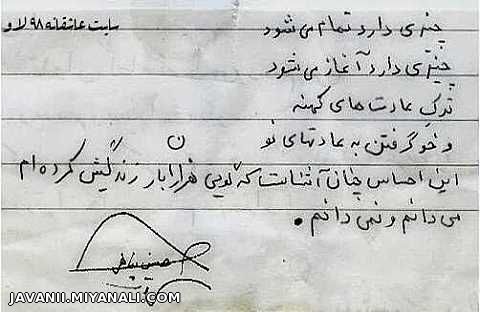 سایت عاشقانه ۹۸ لاو
چیزی دارد تمام می شود
چیزی دارد آغاز می شود
ترک عادت های کهنه
و خو گرفتن به عادتهای نو
این احساس چنان آشناست که گویی هزاران بار زندگیش کرده ام
می دانم و نمی دانم .
حسین پناهی
JAVANII.MIYANALI.COM